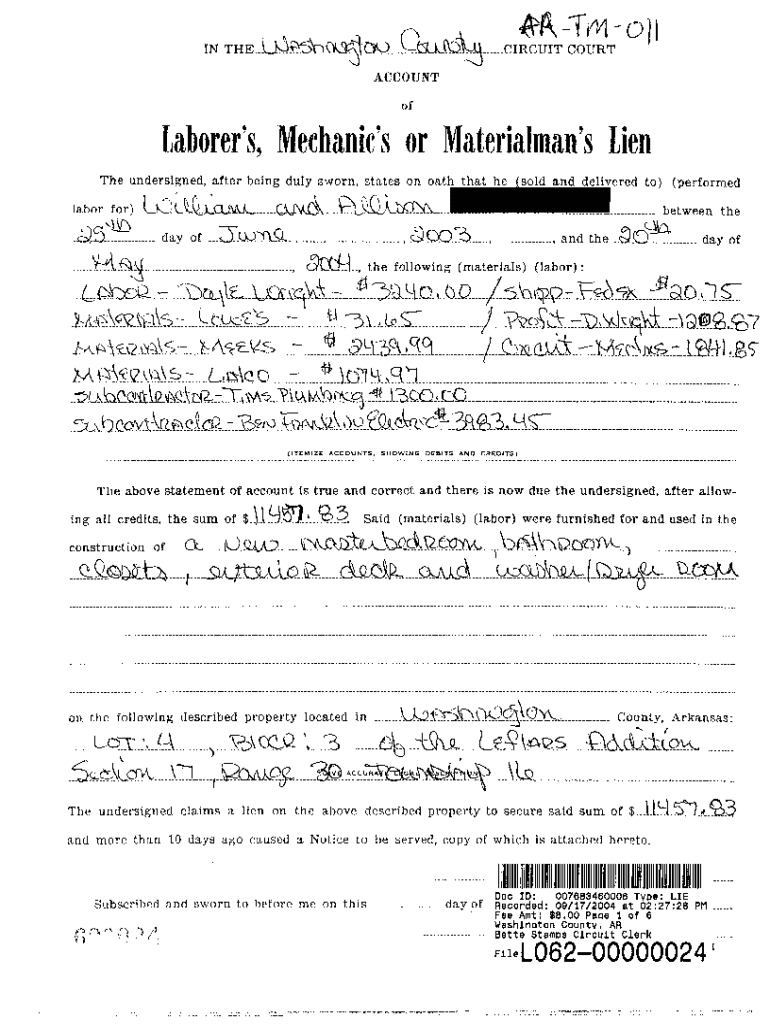 AR-TM-011
IN THE Washington County CIRCUIT COURT
ACCOUNT
of
Laborer's, Mechanic's or Materialman's Lien
The undersigned, after being duly sworn, states on oath that he (sold and delivered to) (performed
labor for) William and Allison between the
25th day of June, 2003, and the 20th day of
May, 2004, the following (materials) (labor):
LABOR - Doyle Wright - $3240.00 / Shipp-FedEx $20.75
Materials - Lowe's - $31.65 / Profit - D. Wright - 1208.87
MATERIALS - MEEKS - $2439.99 / Credit - - 1841.85
MATERIALS - - $1074.97
Subcontractor - Tims Plumbing $1300.00
Subcontractor - Ben Franklin Electric $3983.45
(ITEMIZE ACCOUNTS, SHOWING DEBITS AND CREDITS)
The above statement of account is true and correct and there is now due the undersigned, after allow-
ing all credits, the sum of $ 11457.83 Said (materials) (labor) were furnished for and used in the
construction of a New masterbedroom, bathroom,
closets, exterior deck and washer/Dryer room
on the following described property located in Washington County, Arkansas:
LOT: 4, Block: 3 of the Leflars Addition
Section 17, Range 30 Township 16
The undersigned claims a lien on the above described property to secure said sum of $ 11457.83
and more than 10 days ago caused a Notice to be served, copy of which is attached hereto.
Subscribed and sworn to before me on this day of
Doc ID: 007683460006 Type: LIE
Recorded: 09/17/2004 at 02:27:28 PM
Fee Amt: $8.00 Page 1 of 6
Washington County, AR
Bette Stamps Circuit Clerk
File L062-00000024